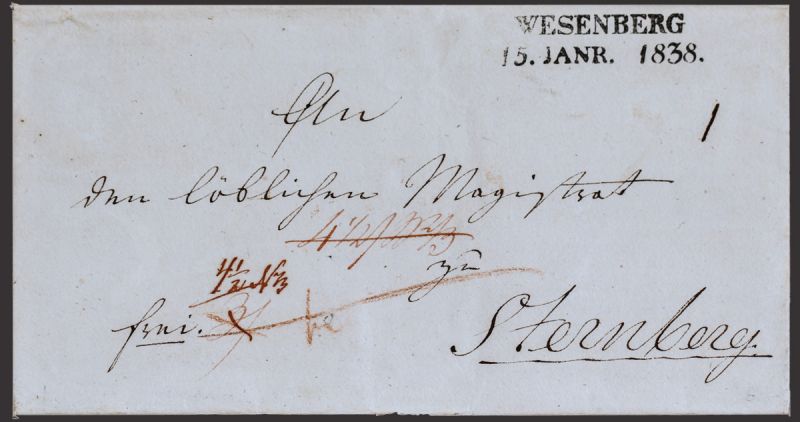 WESENBERG
15. JANR. 1838.
An
1
den löblichen Magistrat
zu
frei.
Sternberg.